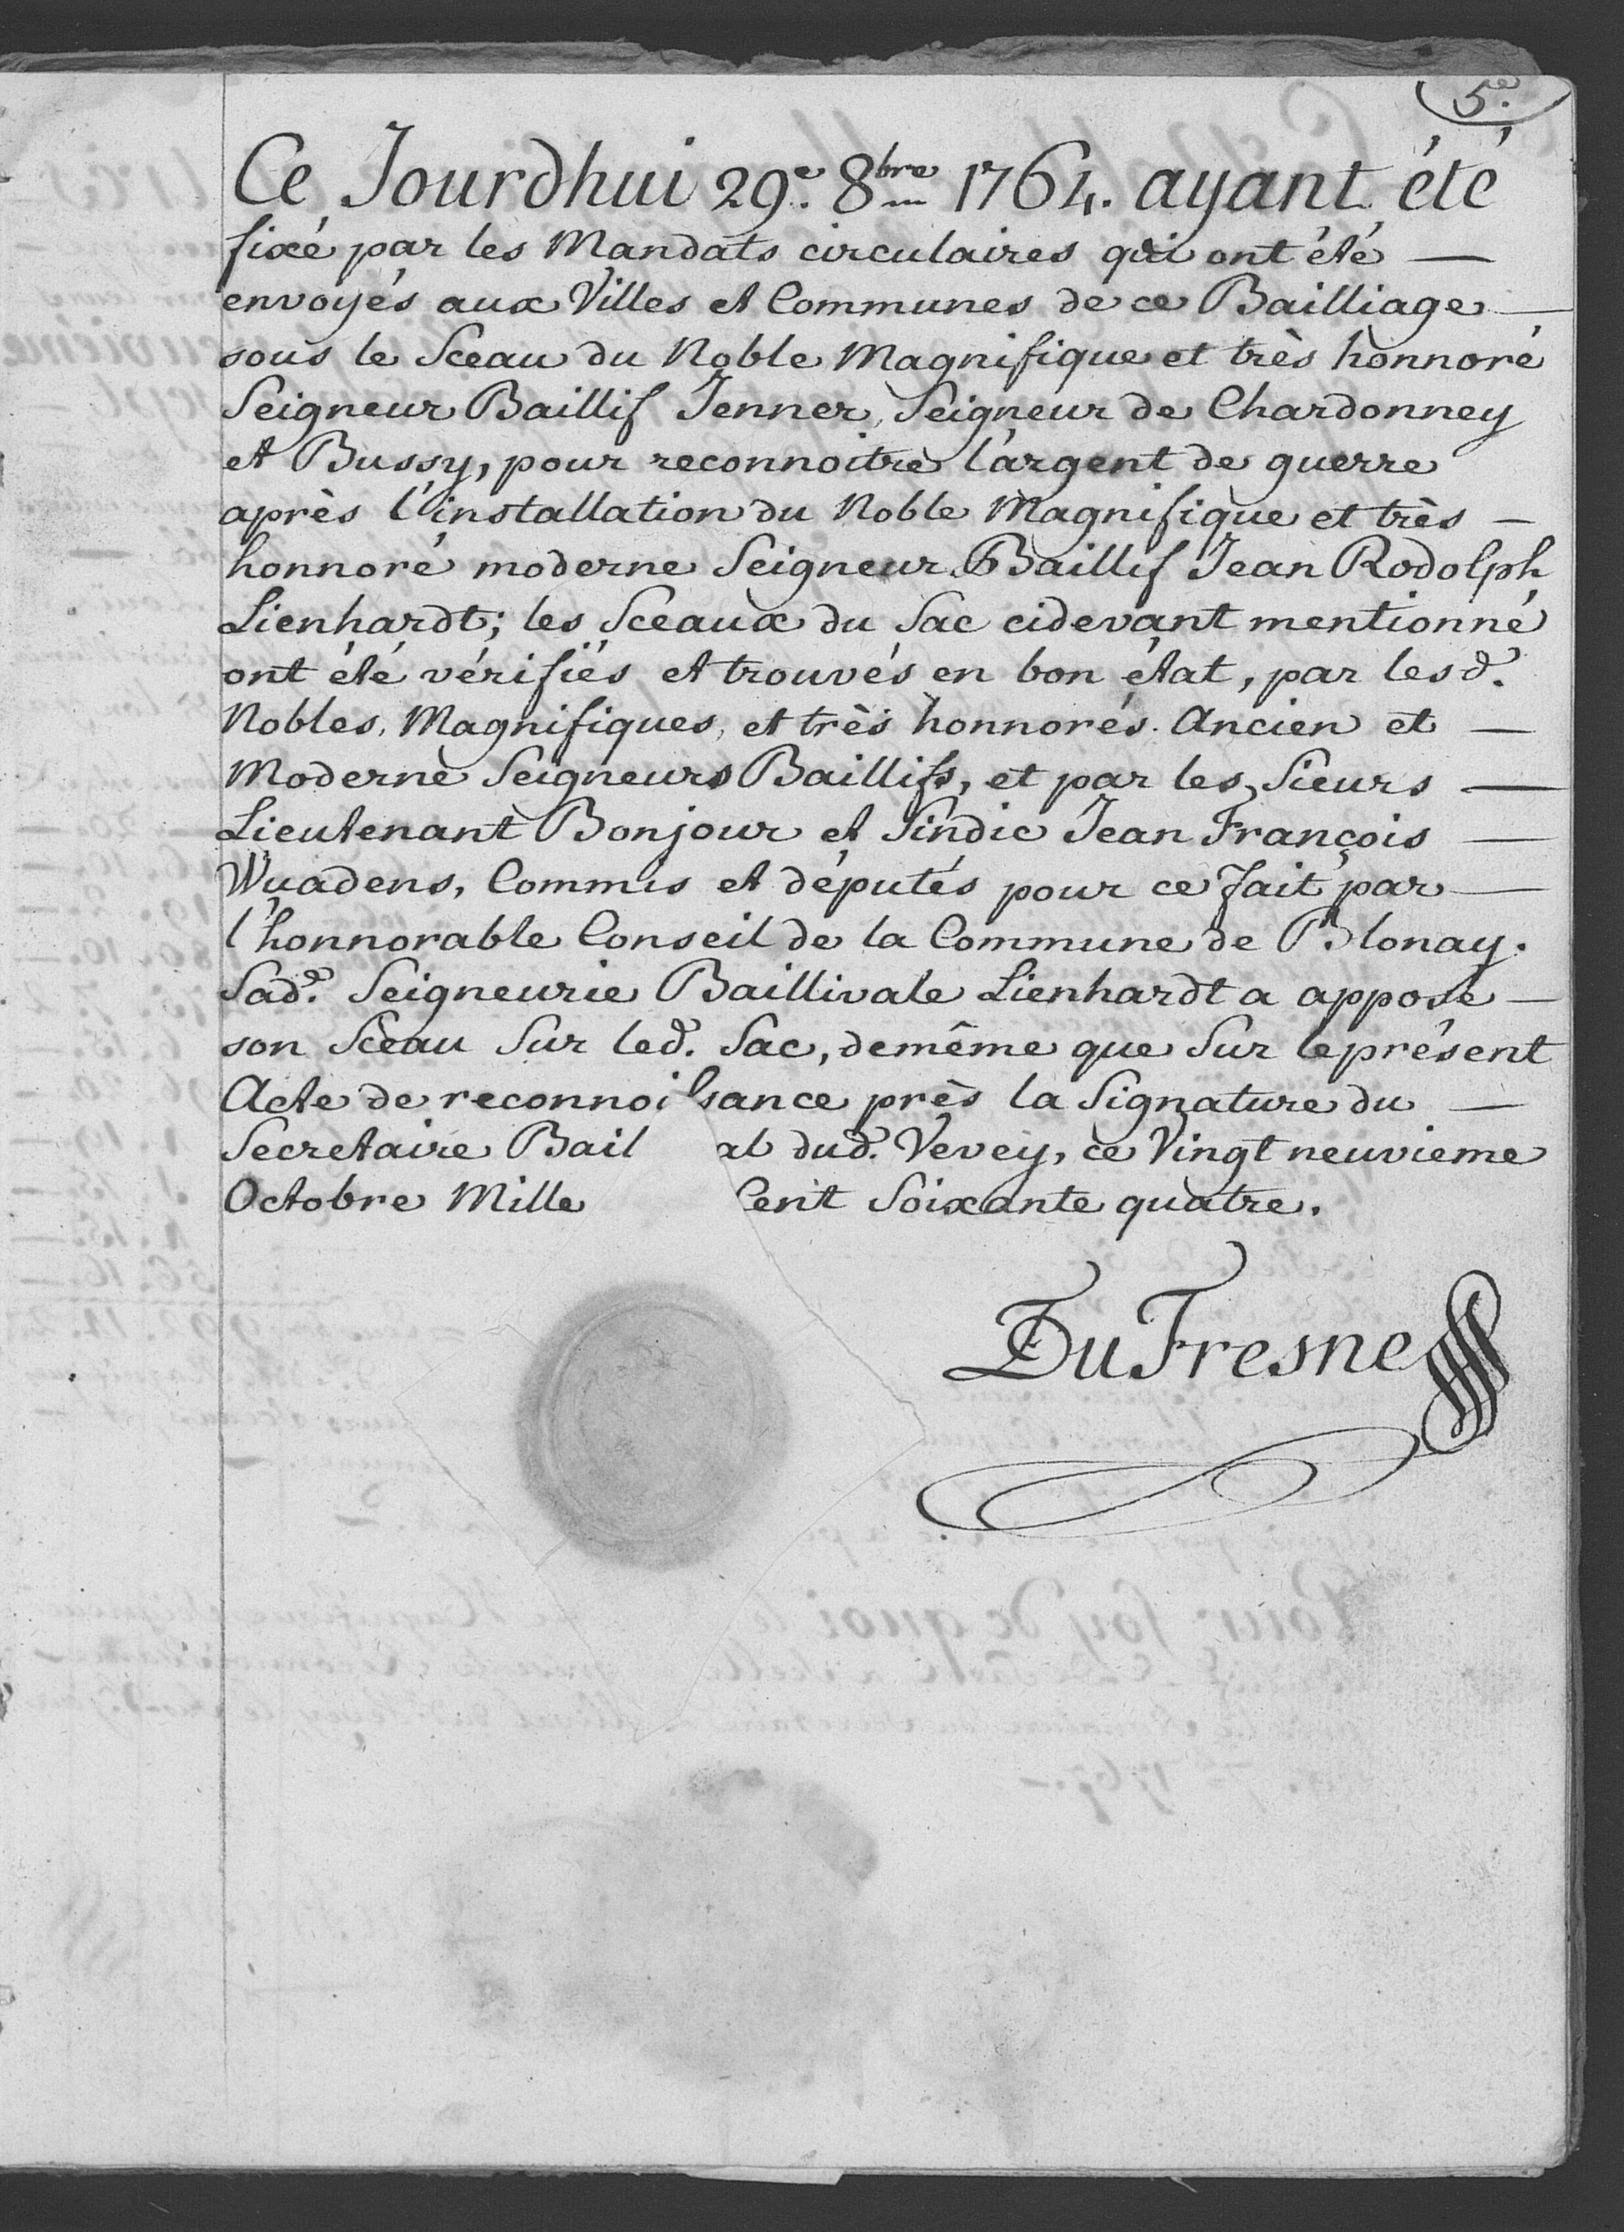 5e.
Ce Jourdhui 29e. 8bre 1764. ayant été
fixé par les Mandats circulaires qui ont été —
envoyés aux Villes et Communes de ce Bailliage —
sous le Sceau du Noble Magnifique et très honnoré
Seigneur Baillif Jenner, Seigneur de Chardonney
et Bussy, pour reconnoitre l'argent de guerre
après l'installation du Noble Magnifique et très —
honnoré moderne Seigneur Baillif Jean Rodolph
Lienhardt; les Sceaux du Sac cidevant mentionné
ont été vérifiés et trouvés en bon état, par lesd.
Nobles, Magnifiques, et très honnorés Ancien et —
Moderne Seigneurs Baillifs, et par les Sieurs —
Lieutenant Bonjour et Sindic Jean François —
Wuadens, Commis et députés pour ce fait par —
l'honnorable Conseil de la Commune de Blonay.
Sad. Seigneurie Baillivale Lienhardt a apposé —
son Sceau Sur led. Sac, demême que Sur le présent
Acte de reconnoissance près la Signature du —
Secretaire Bail al dud. Vevey, ce Vingt neuvieme
Octobre Mille Cent Soixante quatre.
DuFresne